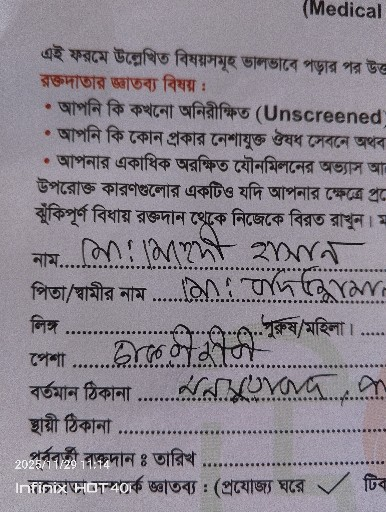 (Medical
এই ফরমে উল্লেখিত বিষয়সমূহ ভালভাবে পড়ার পর উত্ত
রক্তদাতার জ্ঞাতব্য বিষয় :
• আপনি কি কখনো অনিরীক্ষিত (Unscreened)
• আপনি কি কোন প্রকার নেশাযুক্ত ঔষধ সেবনে অথব
• আপনার একাধিক অরক্ষিত যৌনমিলনের অভ্যাস আ
উপরোক্ত কারণগুলোর একটিও যদি আপনার ক্ষেত্রে প্র
ঝুঁকিপূর্ণ বিধায় রক্তদান থেকে নিজেকে বিরত রাখুন।
নাম.... মো: মেহেদী হাসান
পিতা/স্বামীর নাম .... মো:
লিঙ্গ .... পুরুষ/মহিলা।
পেশা .... চাকুরীজীবী
বর্তমান ঠিকানা ....
স্থায়ী ঠিকানা ....
পূর্ববর্তী রক্তদান ঃ তারিখ ....
2025/11/29 11:14
জ্ঞাতব্য : (প্রযোজ্য ঘরে ✓ টিক
Infinix HOT 40i